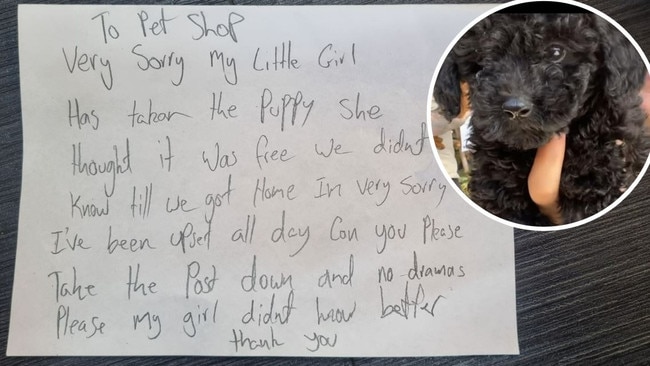 To Pet Shop
Very Sorry My Little Girl
Has takan the Puppy She
thought it was free we didnt
Know till we got Home Im very Sorry
I've been upset all day Can you Please
Take the Post down and no dramas
Please my girl didnt know better
thank you